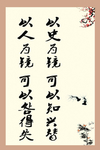 以史为镜可以知兴替
以人为镜可以知得失